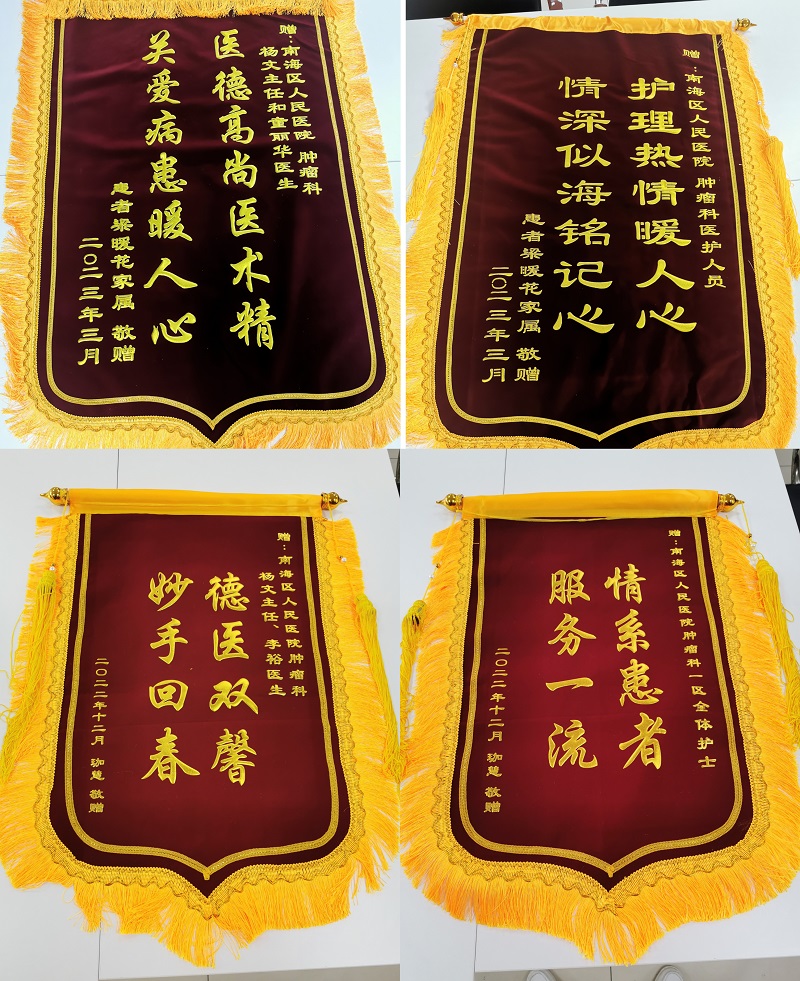 赠:南海区人民医院 肿瘤科
杨文主任和童丽华医生
医德高尚医术精
关爱病患暖人心
患者梁暖花家属 敬赠
二〇二三年三月
赠:南海区人民医院 肿瘤科医护人员
护理热情暖人心
情深似海铭记心
患者梁暖花家属 敬赠
二〇二三年三月
赠:南海区人民医院肿瘤科
杨文主任、李裕医生
德医双馨
妙手回春
二〇二二年十二月 珈慧 敬赠
赠:南海区人民医院肿瘤科一区全体护士
情系患者
服务一流
二〇二二年十二月 珈慧 敬赠